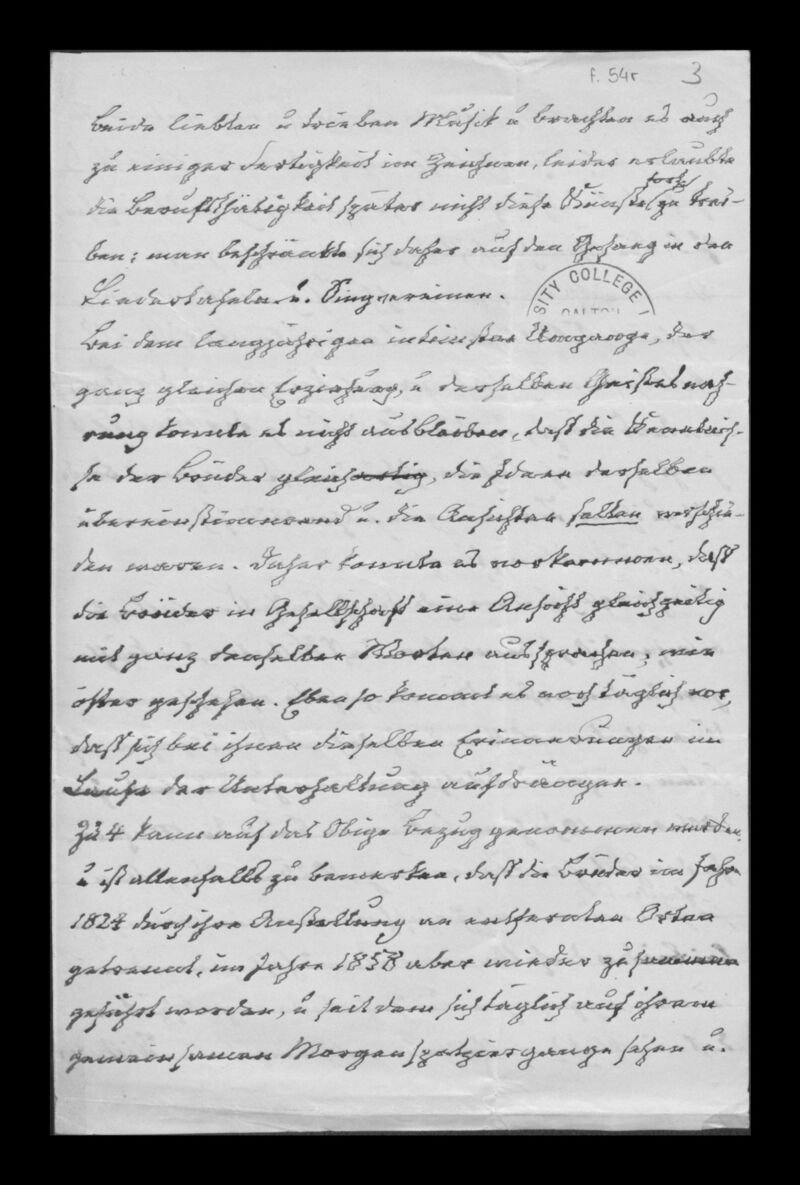 f. 54r 3
beide liebten u trieben Musik u brachten es auch
zu einiger Fertigkeit im Zeichnen, leider erlaubte
die Berufsthätigkeit später nicht diese Künste fort
zu trei-
ben; man beschränkte sich daher auf den Gesang in den
Liedertafeln u. Singvereinen.
SITY COLLEGE
Bei dem langjährigen intimsten Umgange, der
ganz gleichen Erziehung, u derselben Geistesnah-
rung konnte es nicht ausbleiben, daß die Kenntnis-
se der Brüder gleichartig, die Ideen derselben
übereinstimmend u. die Ansichten selten verschie-
den waren. Daher konnte es vorkommen, daß
die Brüder in Gesellschaft eine Ansicht gleichzeitig
mit ganz denselben Worten aussprachen, wie
öfter geschehen. Eben so kommt es noch täglich vor,
daß sich bei ihnen dieselben Erinnerungen im
Laufe der Unterhaltung aufdrängen.
Zu 4 kann auf das Obige Bezug genommen werden,
u ist allenfalls zu bemerken, daß die Brüder im Jahre
1824 durch ihre Anstellung an entfernten Orten
getrennt, im Jahre 1858 aber wieder zusammen
geführt worden, u seit dem sich täglich auf ihrem
gemeinsamen Morgenspatziergange sehen u.